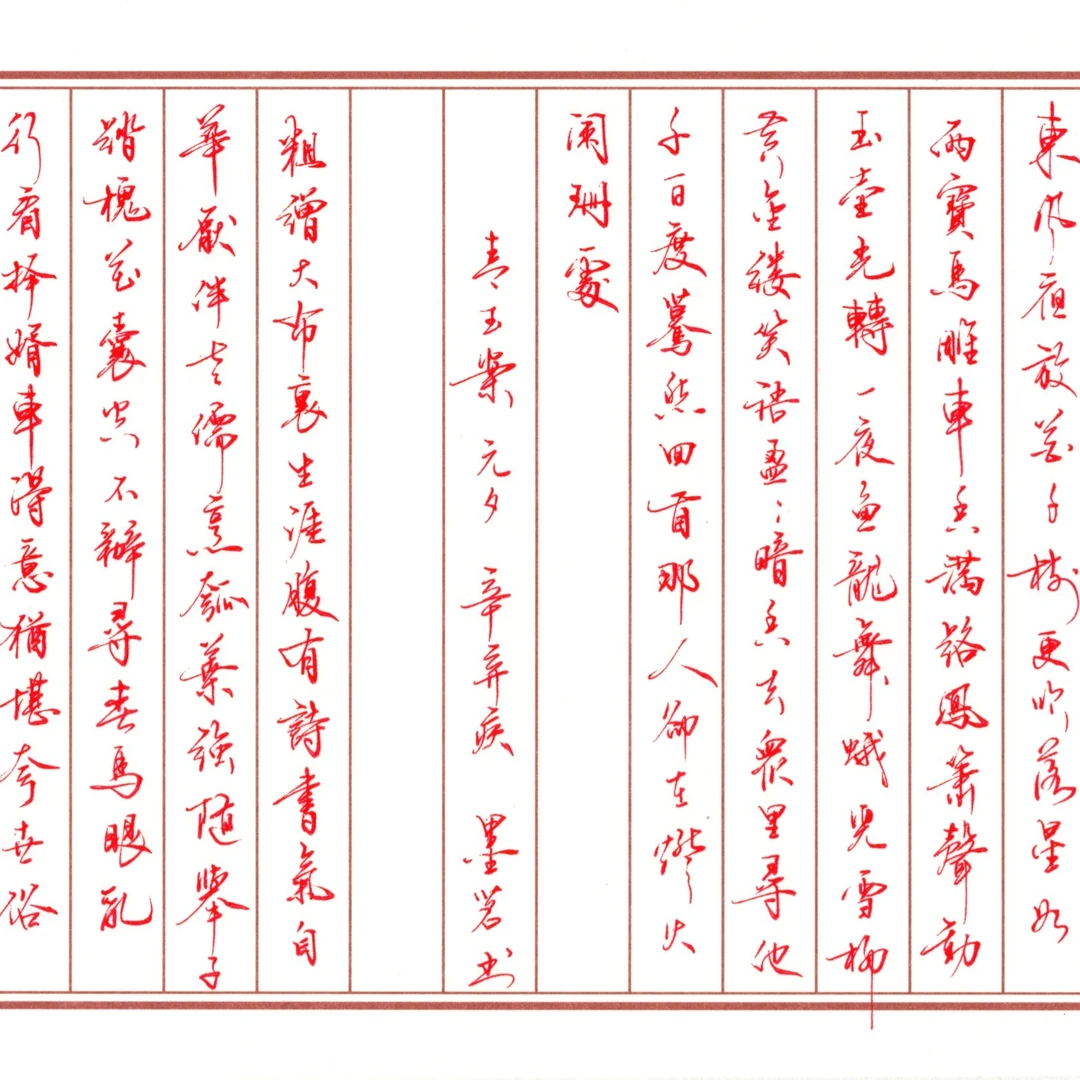 東風夜放花千樹更吹落星如
雨寶馬雕車香滿路鳳簫聲動
玉壺光轉一夜魚龍舞蛾兒雪柳
黃金縷笑語盈〻暗香去衆里尋他
千百度驀然回首那人卻在燈火
闌珊處
青玉案 元夕 辛弃疾 墨茗书
粗繒大布裹生涯腹有詩書氣自
華厭伴老儒烹瓠葉強隨舉子
踏槐花囊空不辦尋春馬眼亂
行看择婿車得意猶堪夸世俗